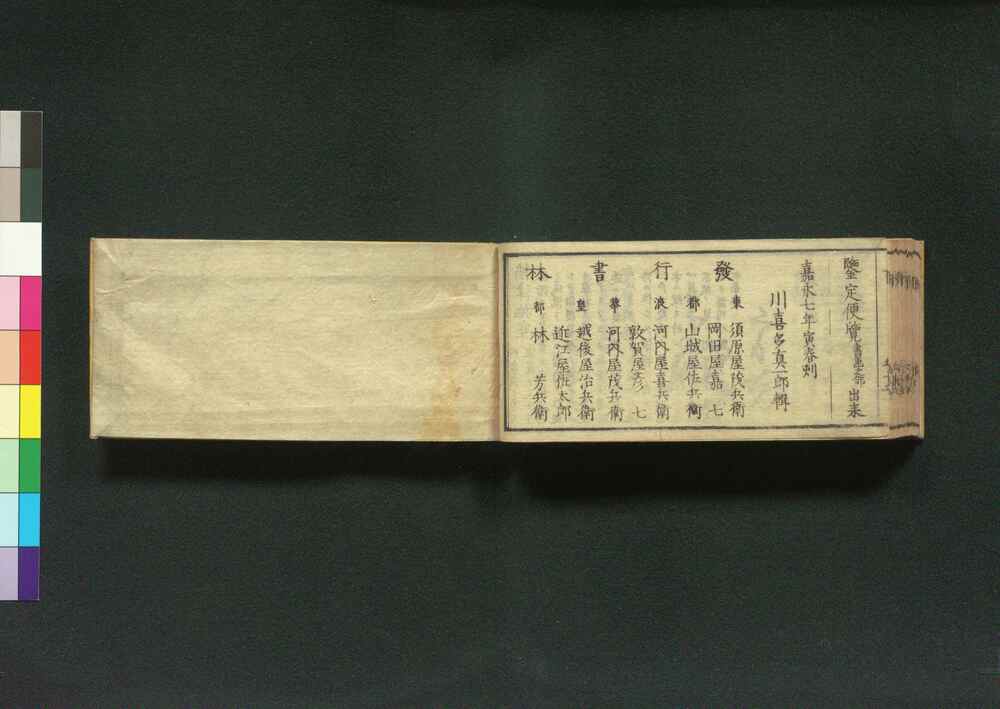 鑒定便覧書畫之部 出来
嘉永七年寅春刻
川喜多真一郎輯
發行書林
東都 須原屋茂兵衛
岡田屋嘉七
山城屋佐兵衛
浪華 河内屋喜兵衛
敦賀屋彦七
河内屋茂兵衛
皇都 越後屋治兵衛
近江屋佐太郎
林芳兵衛